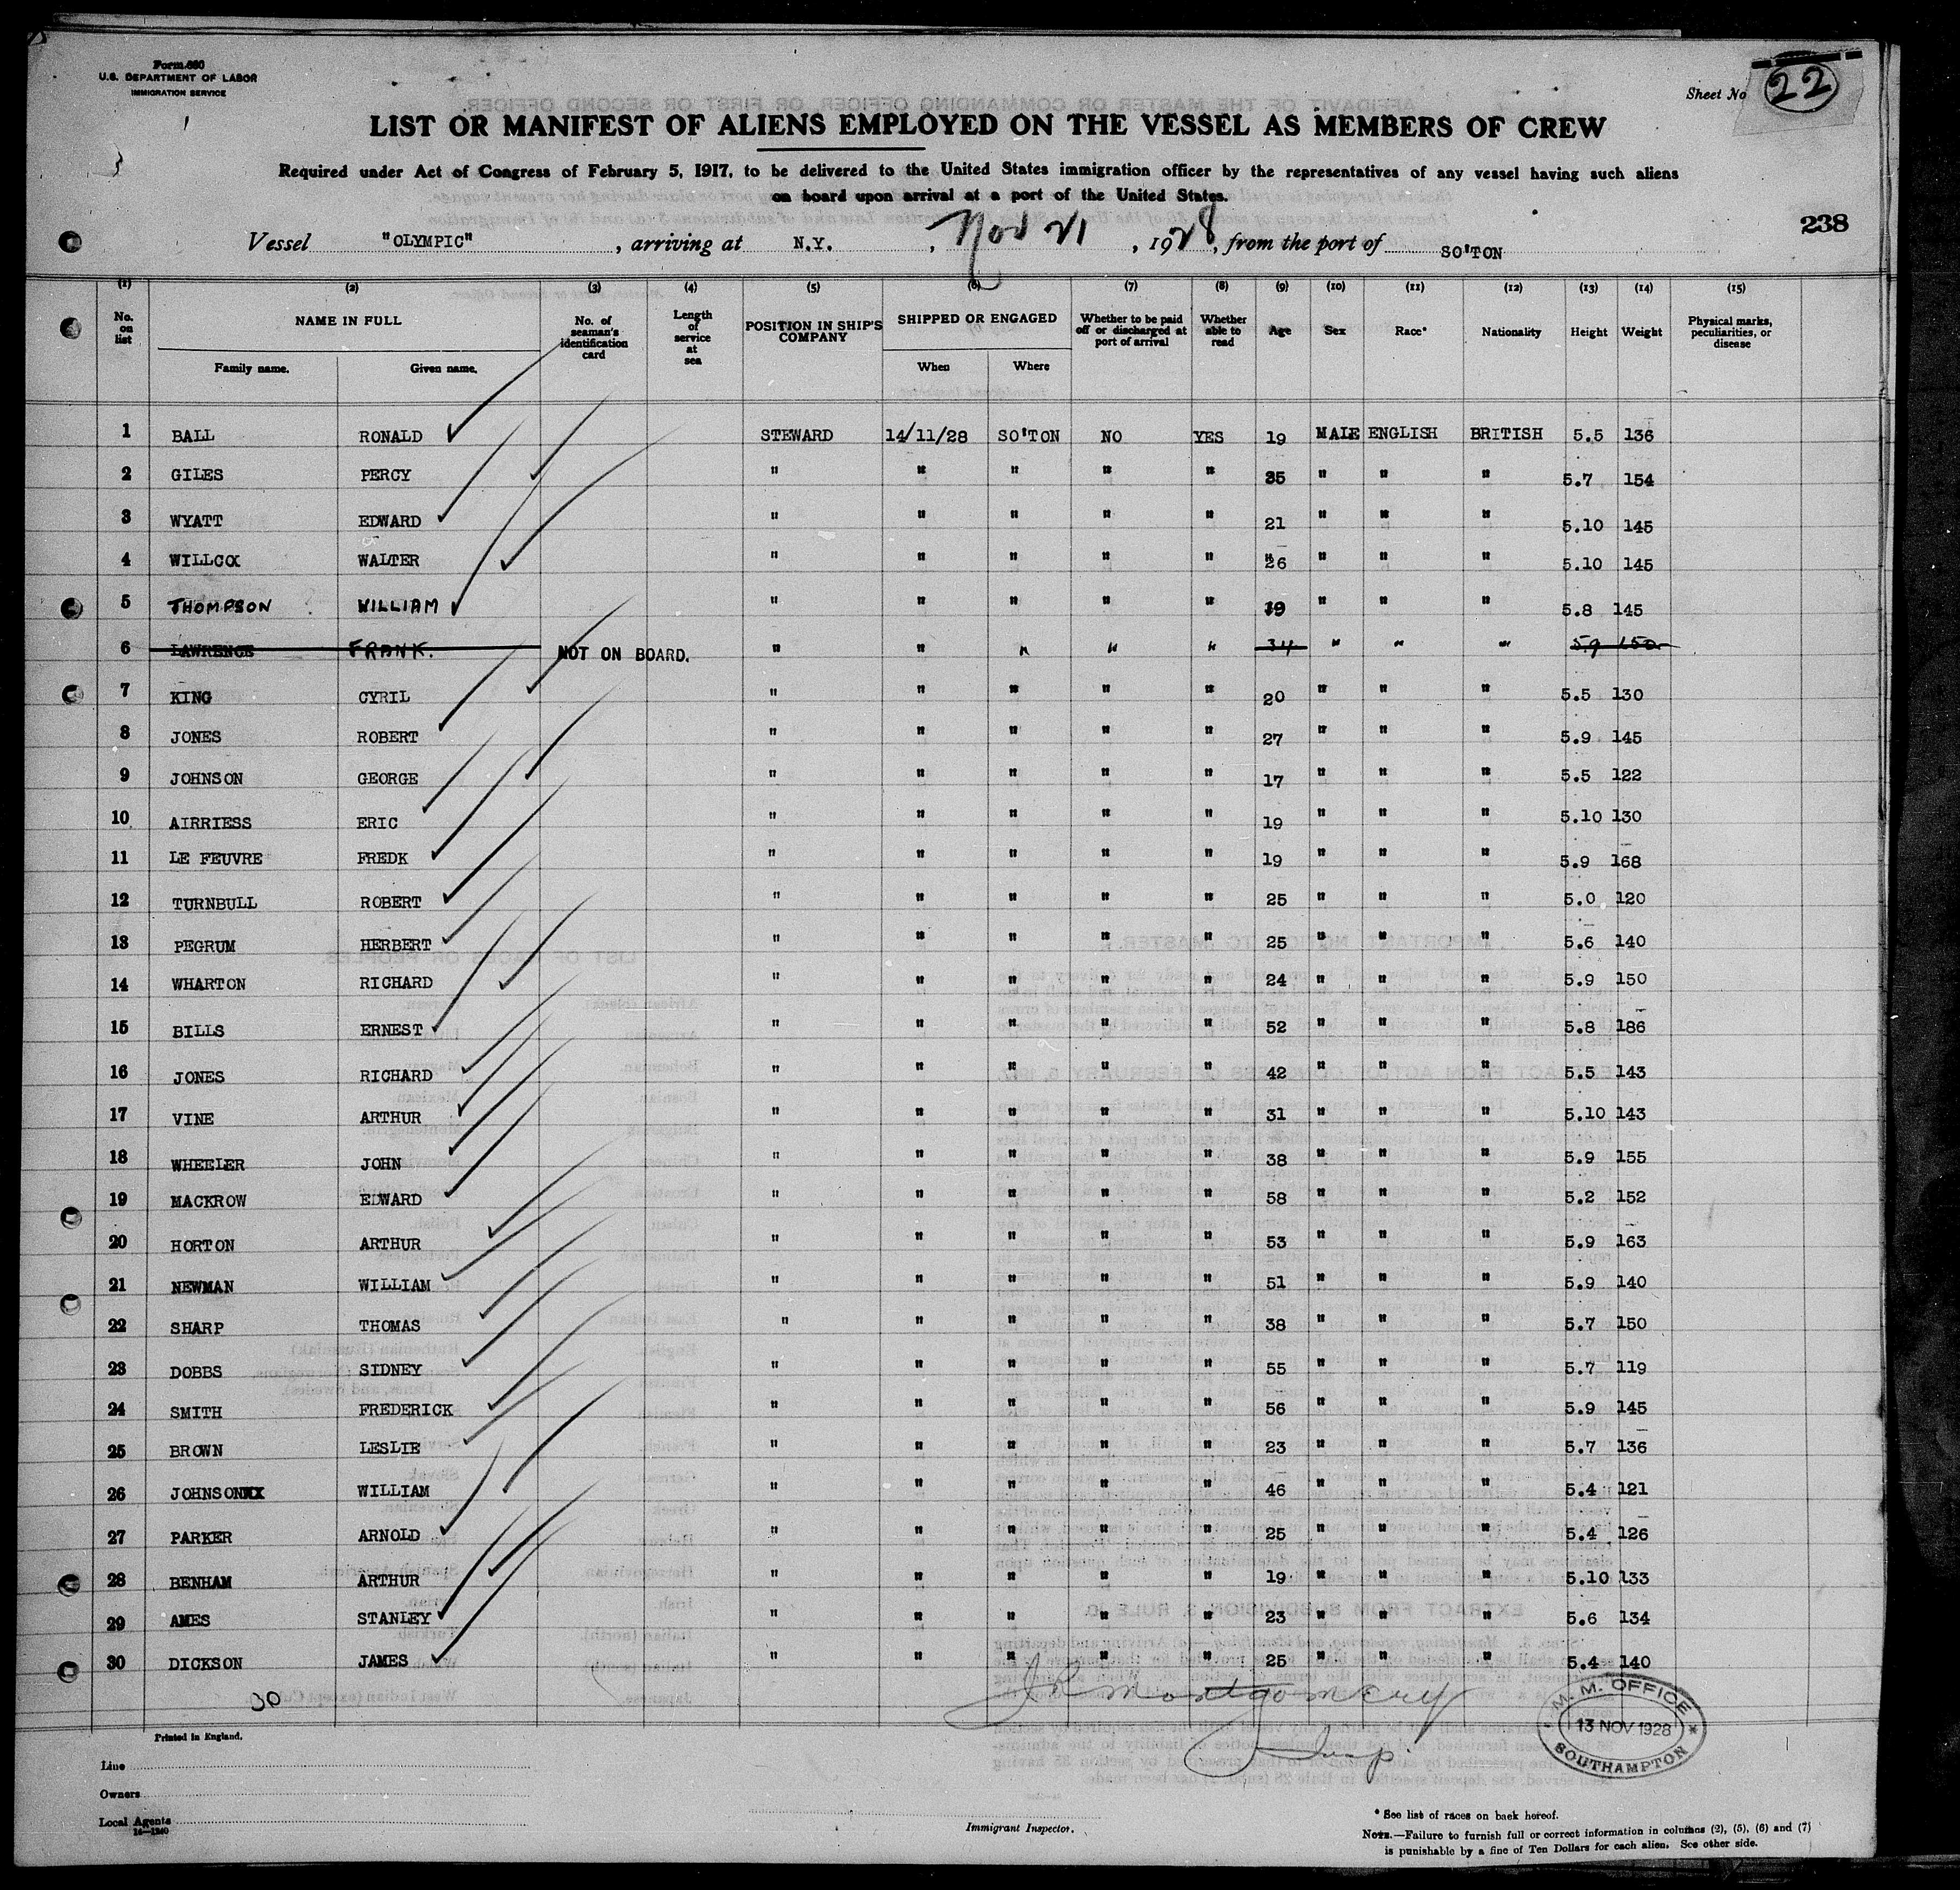 Form 680
U.S. DEPARTMENT OF LABOR
IMMIGRATION SERVICE
Sheet No 22
LIST OR MANIFEST OF ALIENS EMPLOYED ON THE VESSEL AS MEMBERS OF CREW
Required under Act of Congress of February 5, 1917, to be delivered to the United States immigration officer by the representatives of any vessel having such aliens
on board upon arrival at a port of the United States.
238
Vessel "OLYMPIC", arriving at N.Y., Nov 21, 1928, from the port of SO'TON
(1) (2) (3) (4) (5) (6) (7) (8) (9) (10) (11) (12) (13) (14) (15)
No. on list NAME IN FULL Family name. Given name. No. of seaman's identification card Length of service at sea POSITION IN SHIP'S COMPANY SHIPPED OR ENGAGED When Where Whether to be paid off or discharged at port of arrival Whether able to read Age Sex Race* Nationality Height Weight Physical marks, peculiarities, or disease
1 BALL RONALD STEWARD 14/11/28 SO'TON NO YES 19 MALE ENGLISH BRITISH 5.5 136
2 GILES PERCY " " " " " 35 " " " 5.7 154
3 WYATT EDWARD " " " " " 21 " " " 5.10 145
4 WILLCOX WALTER " " " " " 26 " " " 5.10 145
5 THOMPSON WILLIAM " " " " " 19 " " " 5.8 145
6 LAWRENCE FRANK. NOT ON BOARD. " " " " " 34 " " " 5.9 150
7 KING CYRIL " " " " " 20 " " " 5.5 130
8 JONES ROBERT " " " " " 27 " " " 5.9 145
9 JOHNSON GEORGE " " " " " 17 " " " 5.5 122
10 AIRRIESS ERIC " " " " " 19 " " " 5.10 130
11 LE FEUVRE FREDK " " " " " 19 " " " 5.9 168
12 TURNBULL ROBERT " " " " " 25 " " " 5.0 120
13 PEGRUM HERBERT " " " " " 25 " " " 5.6 140
14 WHARTON RICHARD " " " " " 24 " " " 5.9 150
15 BILLS ERNEST " " " " " 52 " " " 5.8 186
16 JONES RICHARD " " " " " 42 " " " 5.5 143
17 VINE ARTHUR " " " " " 31 " " " 5.10 143
18 WHEELER JOHN " " " " " 38 " " " 5.9 155
19 MACKROW EDWARD " " " " " 58 " " " 5.2 152
20 HORTON ARTHUR " " " " " 53 " " " 5.9 163
21 NEWMAN WILLIAM " " " " " 51 " " " 5.9 140
22 SHARP THOMAS " " " " " 38 " " " 5.7 150
23 DOBBS SIDNEY " " " " " 55 " " " 5.7 119
24 SMITH FREDERICK " " " " " 56 " " " 5.9 145
25 BROWN LESLIE " " " " " 23 " " " 5.7 136
26 JOHNSONXX WILLIAM " " " " " 46 " " " 5.4 121
27 PARKER ARNOLD " " " " " 25 " " " 5.4 126
28 BENHAM ARTHUR " " " " " 19 " " " 5.10 133
29 AMES STANLEY " " " " " 23 " " " 5.6 134
30 DICKSON JAMES " " " " " 25 " " " 5.4 140
30
J R Montgomery
Insp.
M. M. OFFICE
13 NOV 1928
SOUTHAMPTON
Printed in England.
Line
Owners
Local Agents
14—1240
Immigrant Inspector.
* See list of races on back hereof.
NOTE.—Failure to furnish full or correct information in columns (2), (5), (6) and (7)
is punishable by a fine of Ten Dollars for each alien. See other side.